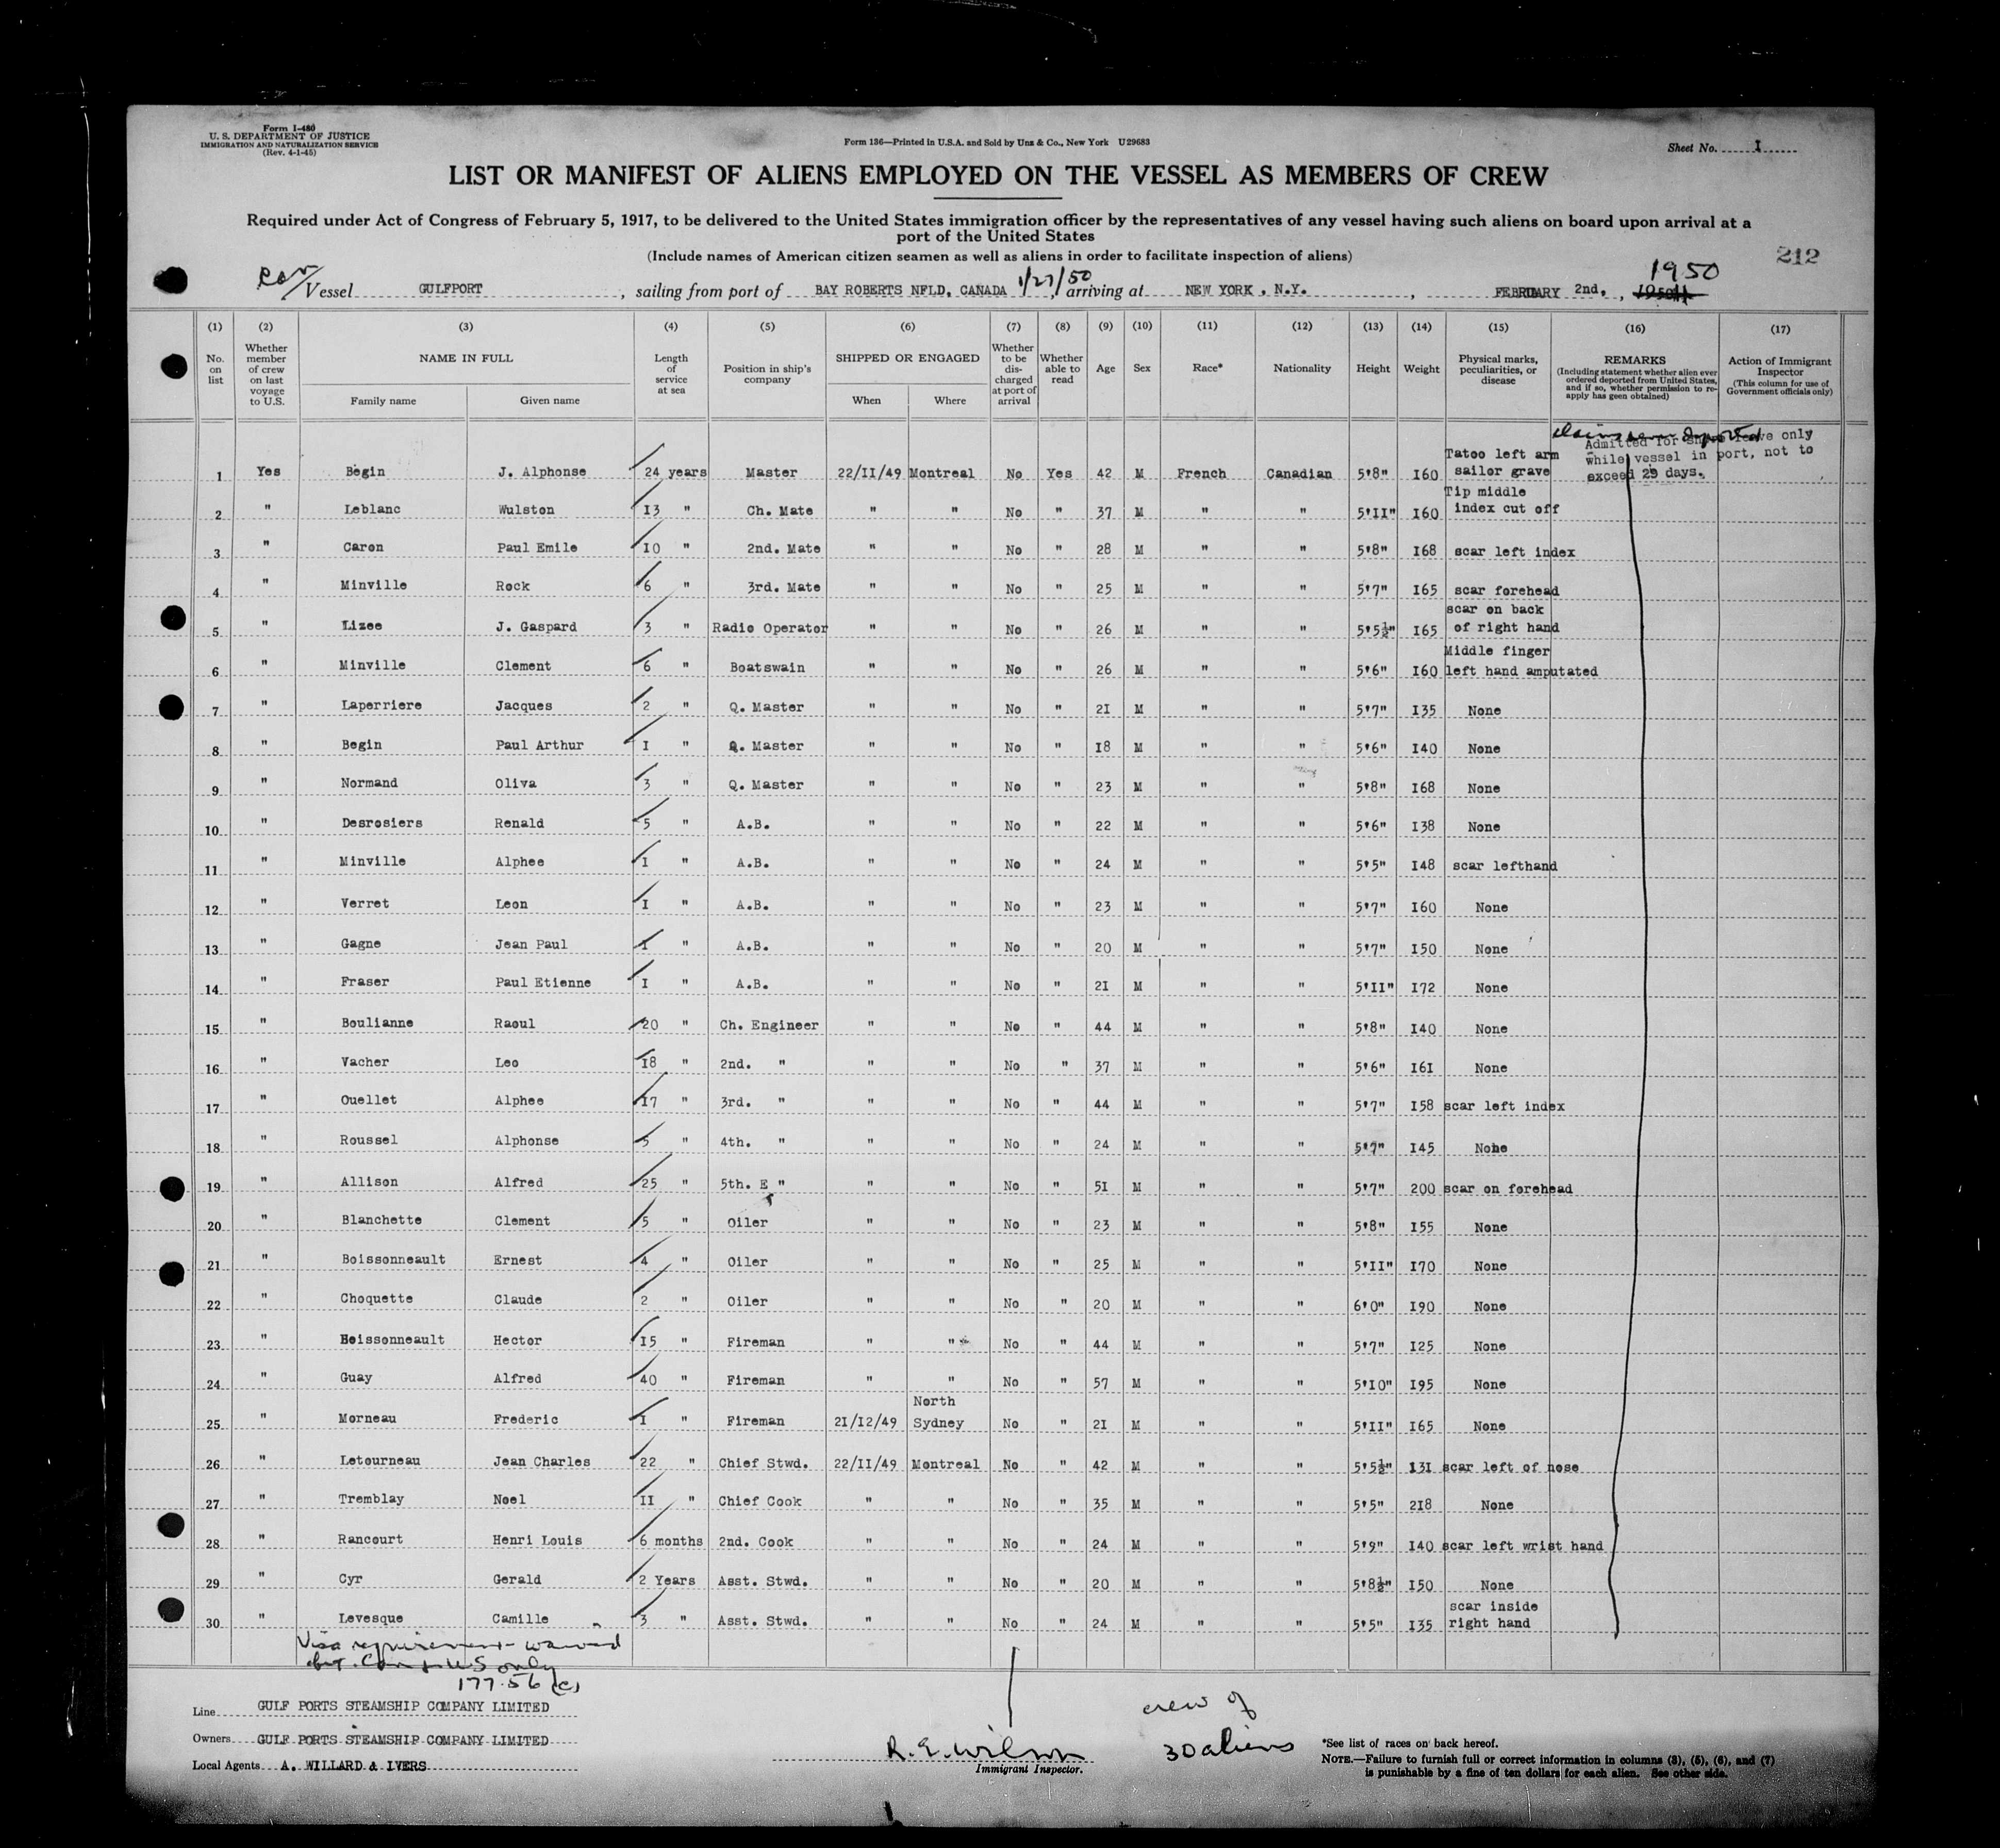 Form I-480
U. S. DEPARTMENT OF JUSTICE
IMMIGRATION AND NATURALIZATION SERVICE
(Rev. 4-1-45)
Form 136—Printed in U.S.A. and Sold by Unz & Co., New York U29683
Sheet No. I
LIST OR MANIFEST OF ALIENS EMPLOYED ON THE VESSEL AS MEMBERS OF CREW
Required under Act of Congress of February 5, 1917, to be delivered to the United States immigration officer by the representatives of any vessel having such aliens on board upon arrival at a
port of the United States
(Include names of American citizen seamen as well as aliens in order to facilitate inspection of aliens)
212
Vessel GULFPORT, sailing from port of BAY ROBERTS NFLD, CANADA 1/27/50, arriving at NEW YORK, N.Y., FEBRUARY 2nd., 1950
(1) (2) (3) (4) (5) (6) (7) (8) (9) (10) (11) (12) (13) (14) (15) (16) (17)
No. on list
Whether member of crew on last voyage to U.S.
NAME IN FULL
Family name Given name
Length of service at sea
Position in ship's company
SHIPPED OR ENGAGED
When Where
Whether to be discharged at port of arrival
Whether able to read
Age
Sex
Race*
Nationality
Height
Weight
Physical marks, peculiarities, or disease
REMARKS
(Including statement whether alien ever ordered deported from United States, and if so, whether permission to re-apply has geen obtained)
Action of Immigrant Inspector
(This column for use of Government officials only)
Admitted for shore leave only
while vessel in port, not to
exceed 29 days.
1 Yes Begin J. Alphonse 24 years Master 22/II/49 Montreal No Yes 42 M French Canadian 5'8" I60 Tatoo left arm sailor grave
2 " Leblanc Wulston I3 " Ch. Mate " " No " 37 M " " 5'II" I60 Tip middle index cut off
3 " Caron Paul Emile IO " 2nd. Mate " " No " 28 M " " 5'8" I68 scar left index
4 " Minville Rock 6 " 3rd. Mate " " No " 25 M " " 5'7" I65 scar forehead
5 " Lizee J. Gaspard 3 " Radio Operator " " No " 26 M " " 5'5½" I65 scar on back of right hand
6 " Minville Clement 6 " Boatswain " " No " 26 M " " 5'6" I60 Middle finger left hand amputated
7 " Laperriere Jacques 2 " Q. Master " " No " 2I M " " 5'7" I35 None
8 " Begin Paul Arthur I " Q. Master " " No " I8 M " " 5'6" I40 None
9 " Normand Oliva 3 " Q. Master " " No " 23 M " " 5'8" I68 None
10 " Desrosiers Renald 5 " A.B. " " No " 22 M " " 5'6" I38 None
11 " Minville Alphee I " A.B. " " No " 24 M " " 5'5" I48 scar lefthand
12 " Verret Leon I " A.B. " " No " 23 M " " 5'7" I60 None
13 " Gagne Jean Paul I " A.B. " " No " 20 M " " 5'7" I50 None
14 " Fraser Paul Etienne I " A.B. " " No " 2I M " " 5'II" I72 None
15 " Boulianne Raoul 20 " Ch. Engineer " " No " 44 M " " 5'8" I40 None
16 " Vacher Leo I8 " 2nd. " " " No " 37 M " " 5'6" I6I None
17 " Ouellet Alphee I7 " 3rd. " " " No " 44 M " " 5'7" I58 scar left index
18 " Roussel Alphonse 5 " 4th. " " " No " 24 M " " 5'7" I45 None
19 " Allison Alfred 25 " 5th. E " " " No " 5I M " " 5'7" 200 scar on forehead
20 " Blanchette Clement 5 " Oiler " " No " 23 M " " 5'8" I55 None
21 " Boissonneault Ernest 4 " Oiler " " No " 25 M " " 5'II" I70 None
22 " Choquette Claude 2 " Oiler " " No " 20 M " " 6'0" I90 None
23 " Boissonneault Hector I5 " Fireman " " No " 44 M " " 5'7" I25 None
24 " Guay Alfred 40 " Fireman " " No " 57 M " " 5'10" I95 None
25 " Morneau Frederic I " Fireman 2I/I2/49 North Sydney No " 2I M " " 5'II" I65 None
26 " Letourneau Jean Charles 22 " Chief Stwd. 22/II/49 Montreal No " 42 M " " 5'5½" I3I scar left of nose
27 " Tremblay Noel II " Chief Cook " " No " 35 M " " 5'5" 2I8 None
28 " Rancourt Henri Louis 6 months 2nd. Cook " " No " 24 M " " 5'9" I40 scar left wrist hand
29 " Cyr Gerald 2 Years Asst. Stwd. " " No " 20 M " " 5'8½" I50 None
30 " Levesque Camille 3 " Asst. Stwd. " " No " 24 M " " 5'5" I35 scar inside right hand
Visa requirement waived
U.S only
177.56 (c)
Line GULF PORTS STEAMSHIP COMPANY LIMITED
Owners GULF PORTS STEAMSHIP COMPANY LIMITED
Local Agents A. WILLARD & IVERS
R. E. Wilson
Immigrant Inspector.
crew of
30 aliens
*See list of races on back hereof.
NOTE.—Failure to furnish full or correct information in columns (3), (5), (6), and (7)
is punishable by a fine of ten dollars for each alien. See other side.